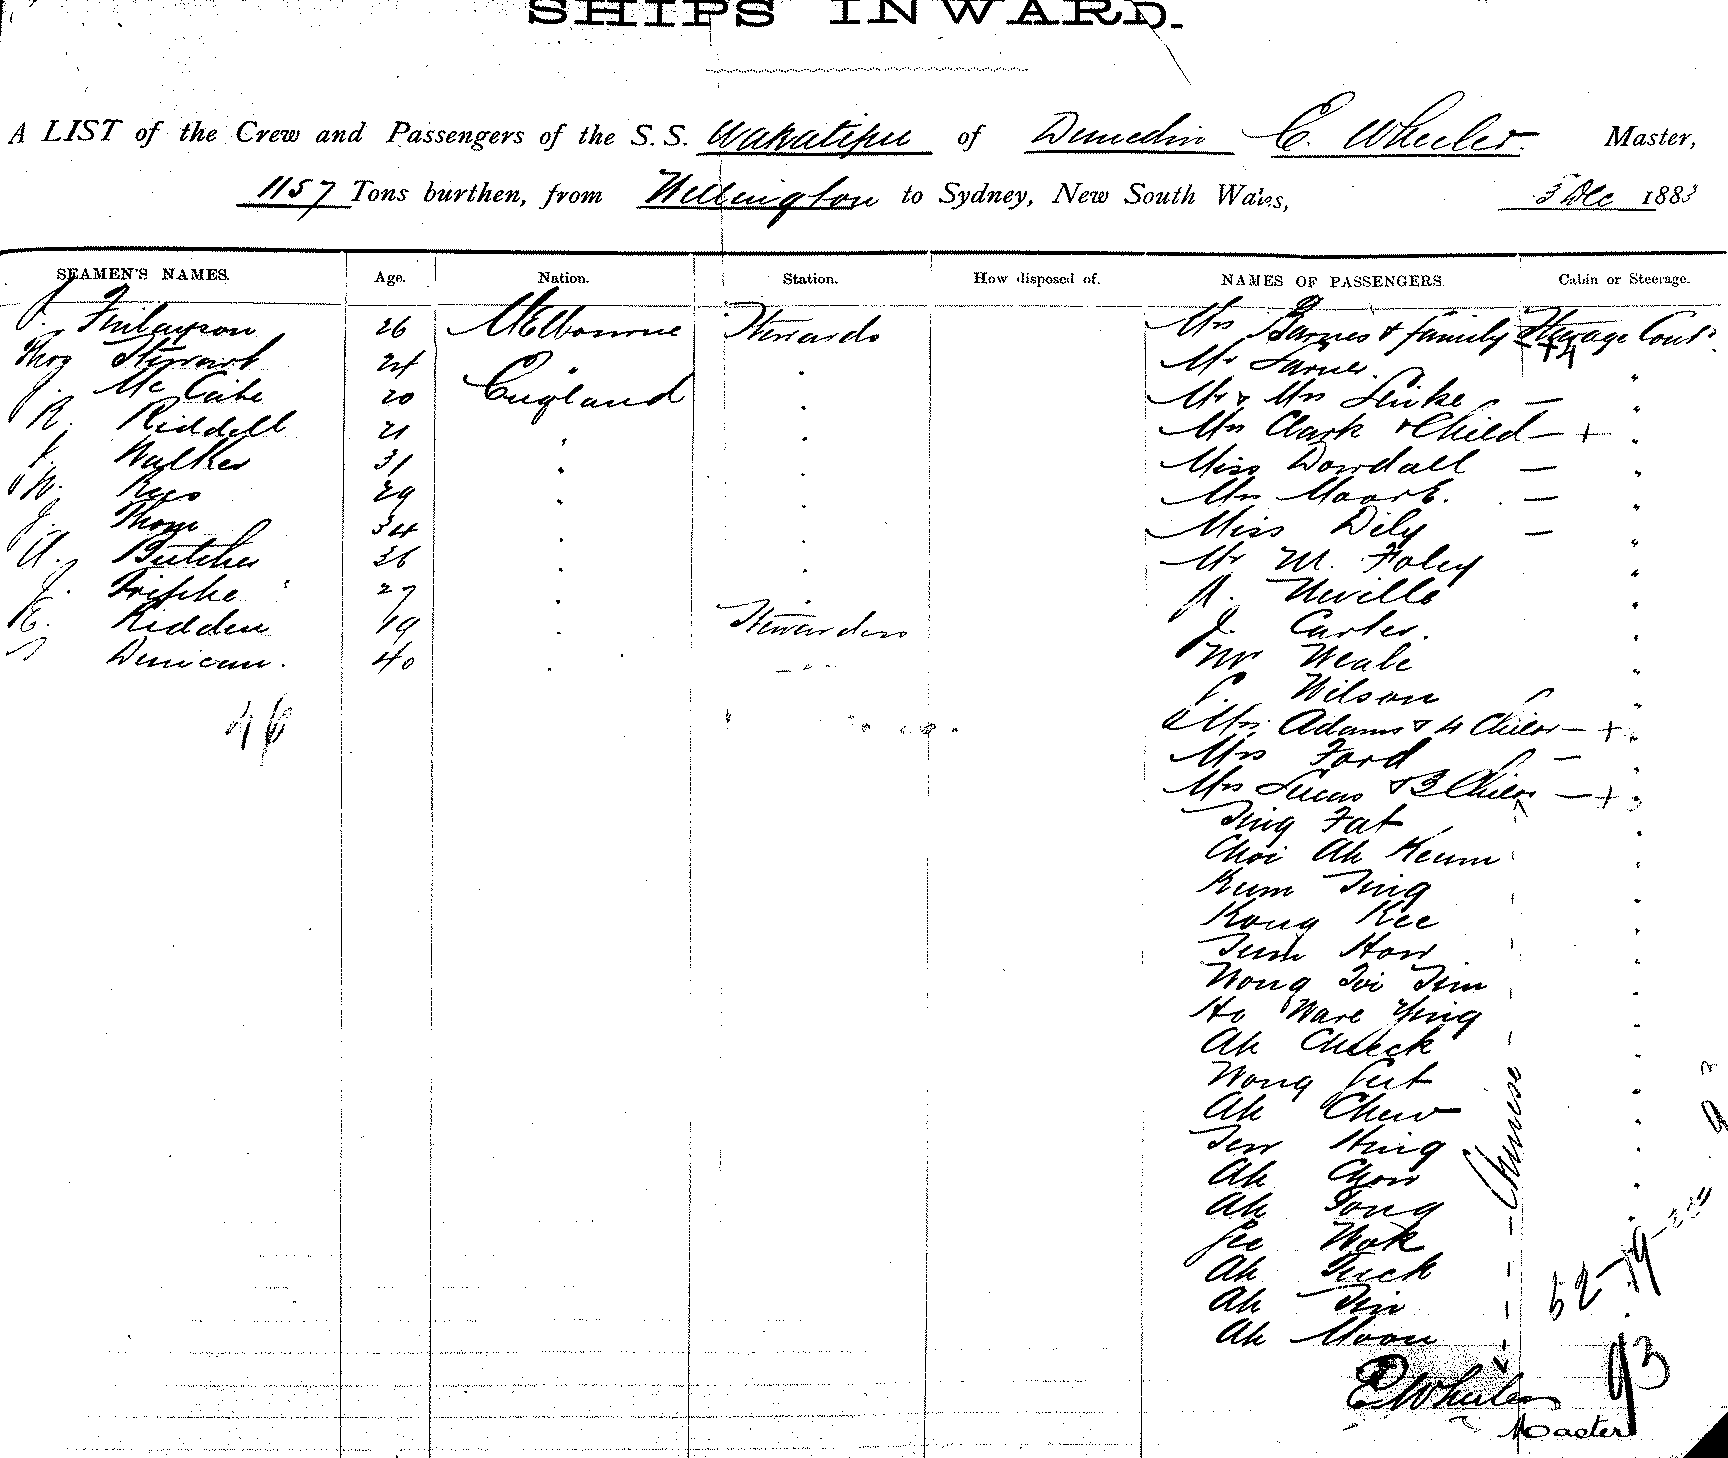 SHIPS INWARD.
A LIST of the Crew and Passengers of the S.S. Wakatipu of Dunedin E. Wheeler Master,
1157 Tons burthen, from Wellington to Sydney, New South Wales, 5 Dec 1883
SEAMEN'S NAMES. Age. Nation. Station. How disposed of. NAMES OF PASSENGERS. Cabin or Steerage.
J. Finlayson 26 Melbourne Stewards Mrs Barnes & family Steerage Contd
Thos Stewart 24 " " Mr "
J. McCabe 20 England " Mr & Mrs Linke — "
R. Riddell 21 " " Mrs Clark & Child — + "
J. Walker 31 " " Miss Dowdall — "
W. Rees 29 " " Mrs Moore. — "
J. Thom 34 " " Miss Dily — "
A. Butcher 36 " " Mr M. Foley "
J. 27 " " Neville "
E. Kidden 19 " Stewardess J. Carter. "
Denican. 40 " Wm Weale "
46 Wilson "
Mrs Adams & 4 Childn — + "
Mrs Ford — "
Mrs Lucas & 3 Childn — + "
Sing Fat "
Choi Ah Keum "
Kum Sing "
Kong Kee "
Sum How "
Wong Soi Sim "
Ho Ware Ying "
Ah Cheeck "
Wong "
Ah Chew "
Sew Hing "
Ah Chow "
Ah Song "
Gee Wok
Ah Suck
Ah Sin
Ah Moon
Chinese
52 19
93
E Wheeler
Master